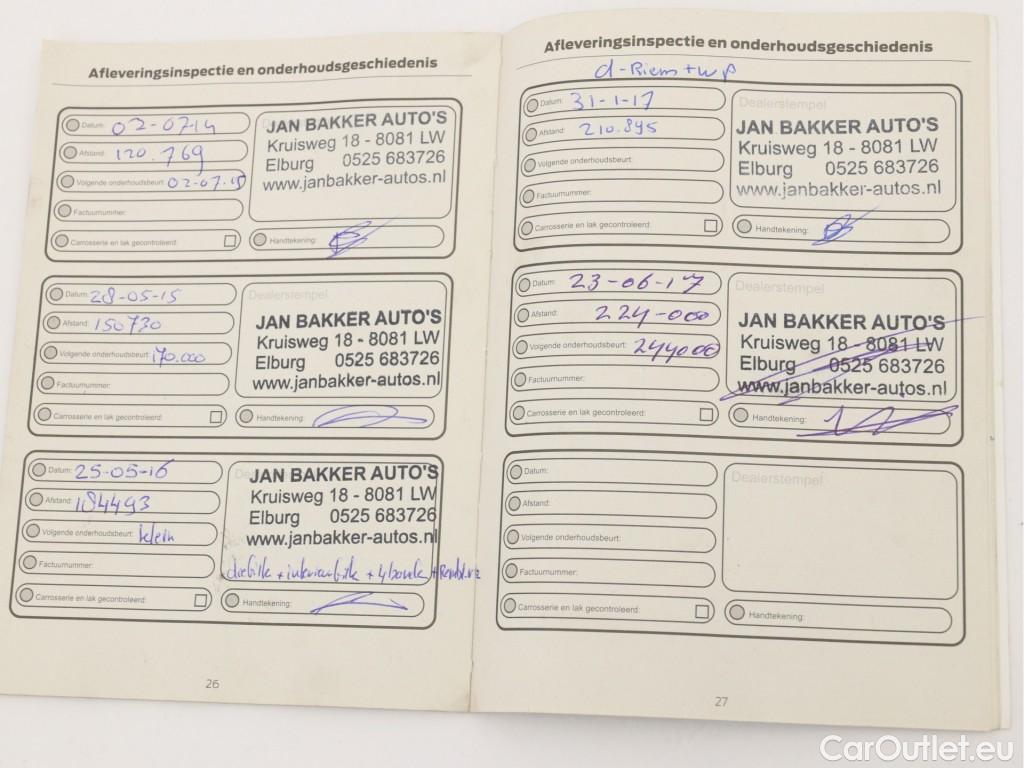 Afleveringsinspectie en onderhoudsgeschiedenis
Datum: 02-07-14
Afstand: 120.769
Volgende onderhoudsbeurt: 02-07-15
Factuurnummer:
Carrosserie en lak gecontroleerd:
JAN BAKKER AUTO'S
Kruisweg 18 - 8081 LW
Elburg 0525 683726
www.janbakker-autos.nl
Handtekening:
Datum: 28-05-15
Afstand: 150730
Volgende onderhoudsbeurt: 170.000
Factuurnummer:
Carrosserie en lak gecontroleerd:
Dealerstempel
JAN BAKKER AUTO'S
Kruisweg 18 - 8081 LW
Elburg 0525 683726
www.janbakker-autos.nl
Handtekening:
Datum: 25-05-16
Afstand: 184493
Volgende onderhoudsbeurt: klein
Factuurnummer:
Carrosserie en lak gecontroleerd:
JAN BAKKER AUTO'S
Kruisweg 18 - 8081 LW
Elburg 0525 683726
www.janbakker-autos.nl
Handtekening:
26
Afleveringsinspectie en onderhoudsgeschiedenis
d-Riem + wp
Datum: 31-1-17
Afstand: 210.895
Volgende onderhoudsbeurt:
Factuurnummer:
Carrosserie en lak gecontroleerd:
Dealerstempel
JAN BAKKER AUTO'S
Kruisweg 18 - 8081 LW
Elburg 0525 683726
www.janbakker-autos.nl
Handtekening:
Datum: 23-06-17
Afstand: 224-000
Volgende onderhoudsbeurt: 244000
Factuurnummer:
Carrosserie en lak gecontroleerd:
Dealerstempel
JAN BAKKER AUTO'S
Kruisweg 18 - 8081 LW
Elburg 0525 683726
www.janbakker-autos.nl
Handtekening:
Datum:
Afstand:
Volgende onderhoudsbeurt:
Factuurnummer:
Carrosserie en lak gecontroleerd:
Dealerstempel
Handtekening:
27
CarOutlet.eu